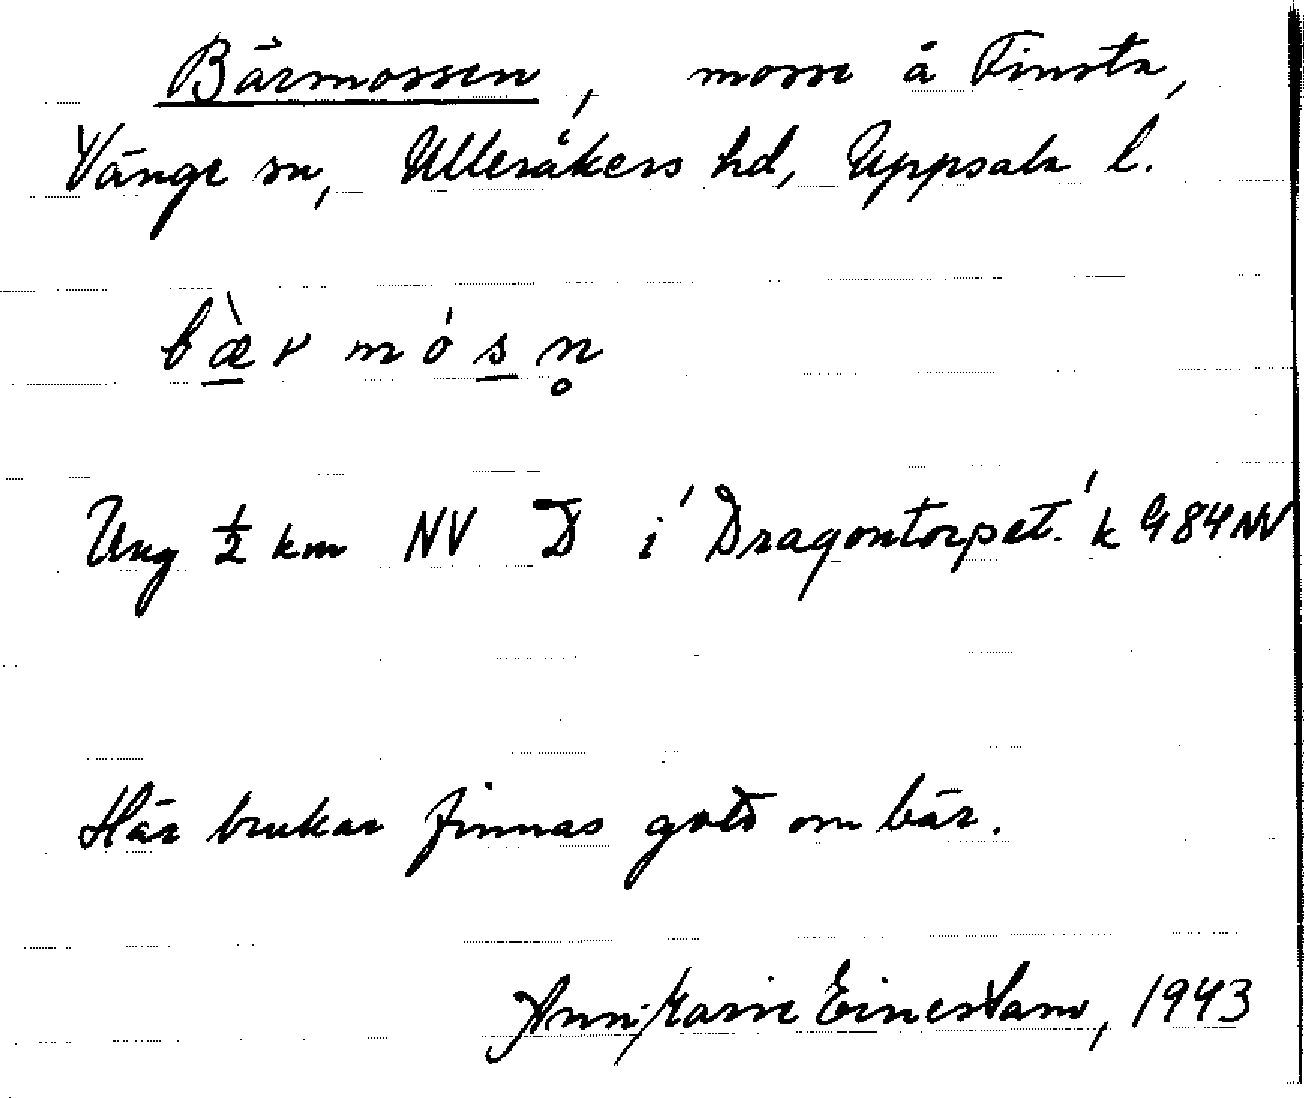 Bärmossen, mosse å Finsta,
Vänge sn, Ulleråkers hd, Uppsala l.
bæ̀r mósn̥
Ung ½ km NV D i 'Dragontorpet.' k G 84 NV
Här brukar finnas gott om bär.
Ann-Marie 1943